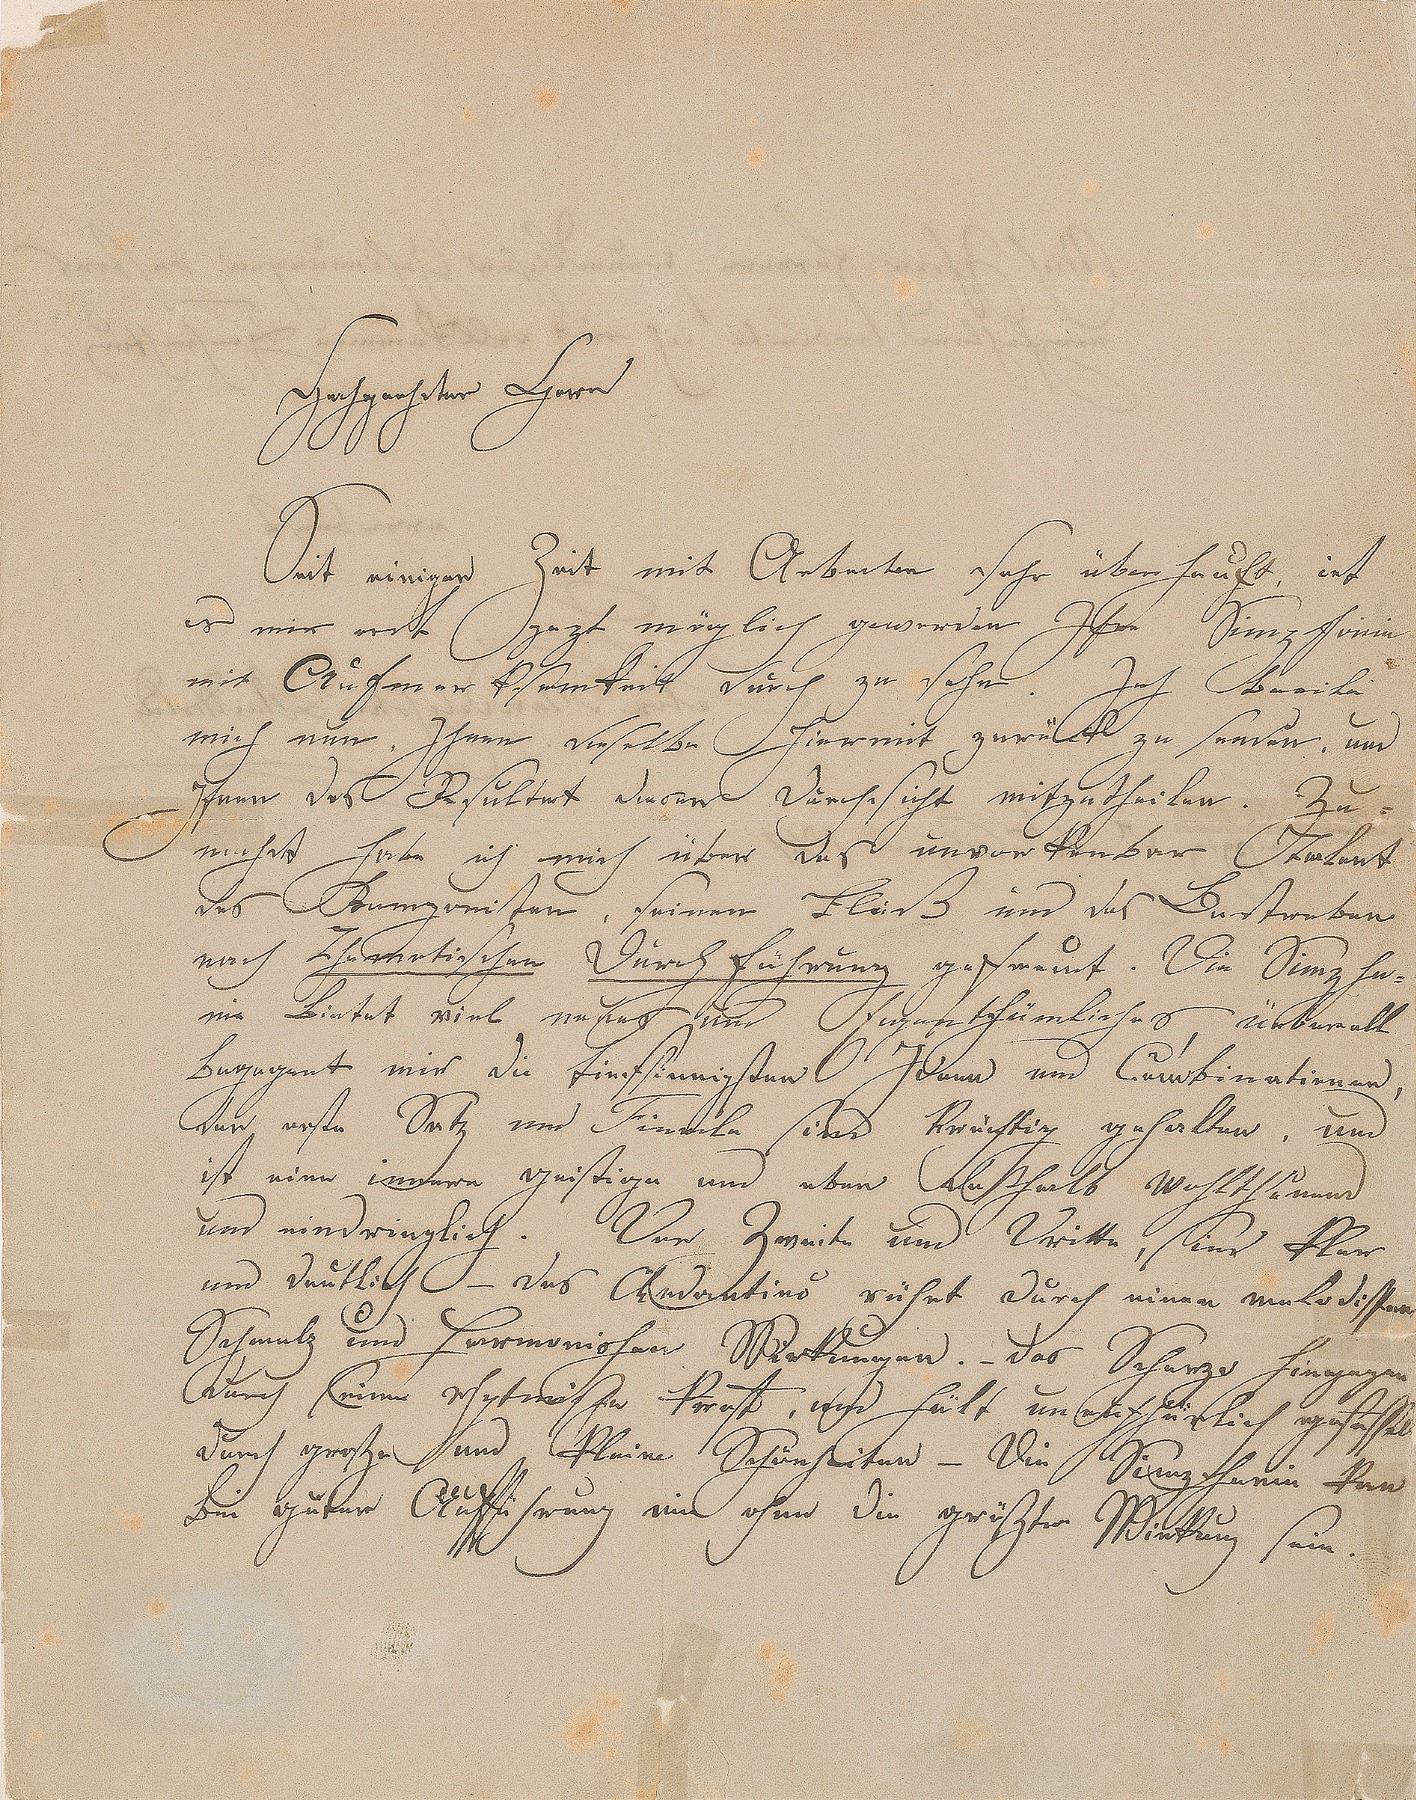 Hochgeehrter Herr
Seit einiger Zeit mit Arbeiten sehr überhäuft, ist
es mir erst jezt möglich geworden Ihre Simphonie
mit Aufmerksamkeit durch zu sehn. Ich beeile
mich nun, Ihnen dieselbe hiermit zurück zu senden, und
Ihnen das Resultat dieser Durchsicht mitzutheilen. Zu=
nächst habe ich mich über das unverkenbar Talent
des Komponisten, seinen Fleiß und das Bestreben
nach Thematischen Durchführung gefreut. Die Simpho=
nie bietet viel neues und Eigenthümliches, überall
begegnet mir die tiefsinnigsten Ideen und Combinationen,
der erste Satz und Finale sind kräftig gehalten, und
ist eine innere geistige und eben deßhalb wohlthuend
und eindringlich. Der Zweite und Dritte, sind klar
und deutlich – das Andantino rührt durch einen melodischen
Schmelz und harmonischen Wirkungen. – das Scherzo hingegen
durch seine rhytmische Kraft, und hält unaufhörlich gefesselt
durch große und kleine Schönheiten – Die Simphonie kan
bei guter Aufführung nie ohne die größte Wirkung sein.